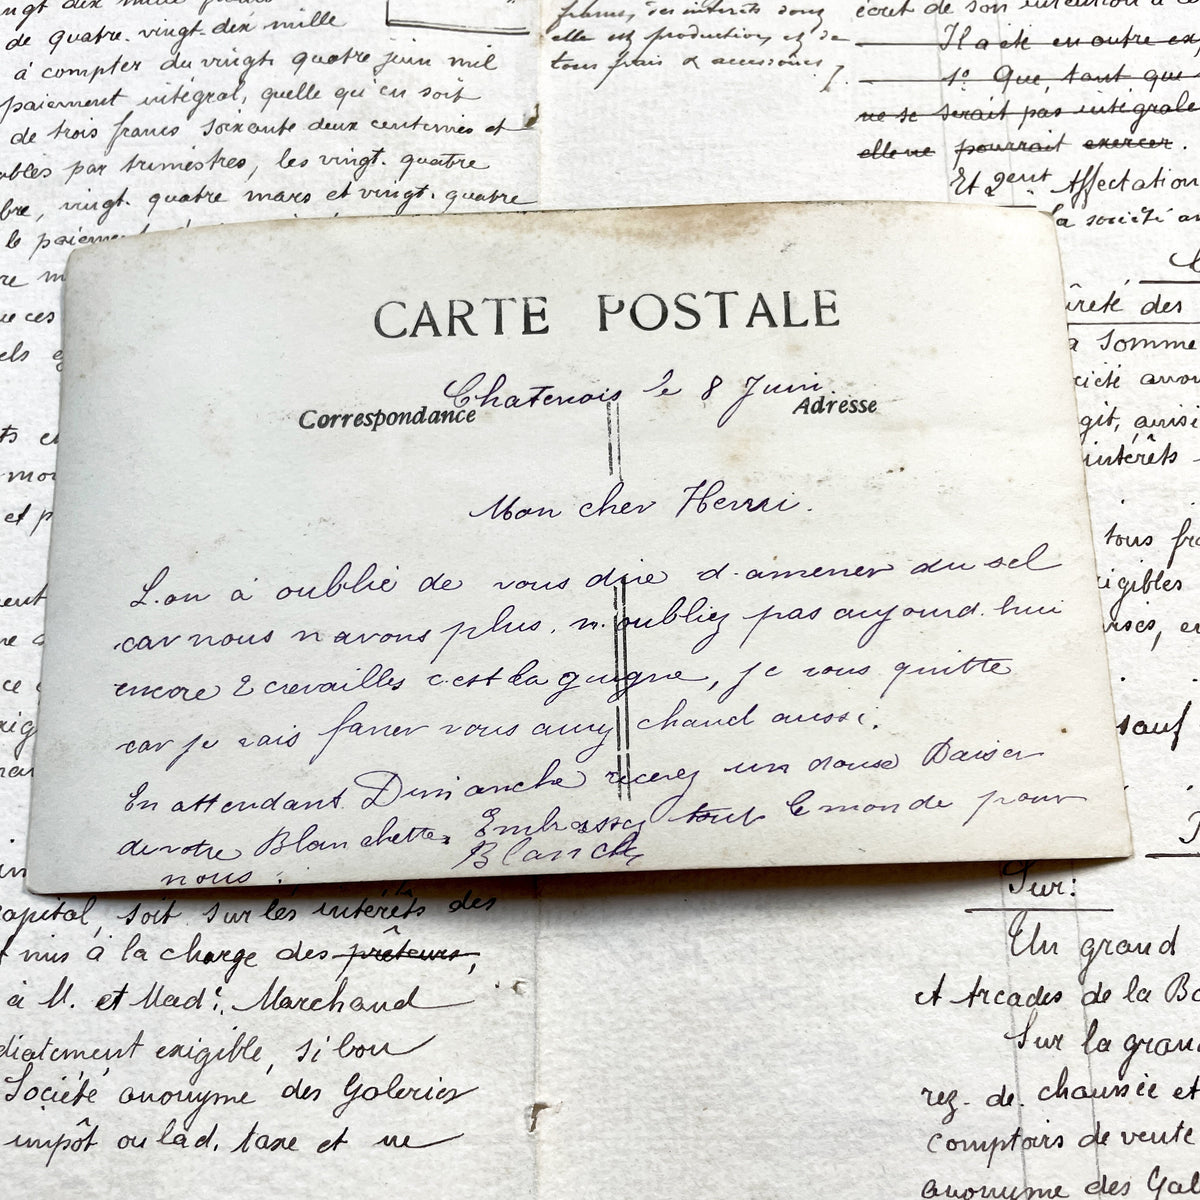 ngt dix mille francs
de quatre. vingt. dix mille
à compter du vingt. quatre juin mil
paiement intégral, quelle qu'en soit
de trois francs soixante deux centimes et
ables par trimestres, les vingt. quatre
bre, vingt. quatre mars et vingt. quatre
le paiement
re m
ue ces
els
francs, des intérêts dont
elle est production, et de
tous frais & accessoires
écret de son intention à ce
Il a été en outre ex
1º Que, tant que
ne se serait pas intégrale
elle ne pourrait exercer.
Et 2ent Affectation
la société an
ûreté des
a somme
ciété anon
git, ainsi
intérêts
tous fra
igibles
sauf
CARTE POSTALE
Chatenois le 8 Juin.
Correspondance
Adresse
Mon cher Henri.
L.on à oublié de vous dire d.amener du sel
car nous n avons plus. n.oubliez pas aujourd.hui
encore 2 crevailles c.est la guigne, je vous quitte
car je vais faner vous avez chaud aussi.
En attendant Dimanche recevez un doux Baiser
de votre Blanchette. Embrassez tout le monde pour
nous.
Blanche
ts e
mo
et p
ent
ce
xig
capital, soit sur les intérêts des
mis à la charge des prêteurs,
à M. et Made. Marchand
diatement exigible, si bon
Société anonyme des Galeries
impôt ou lad. taxe et ne
Sur:
Un grand
et Arcades de la Bo
Sur la gran
rez. de. chaussée et
comptoirs de vente
anonyme des Gal